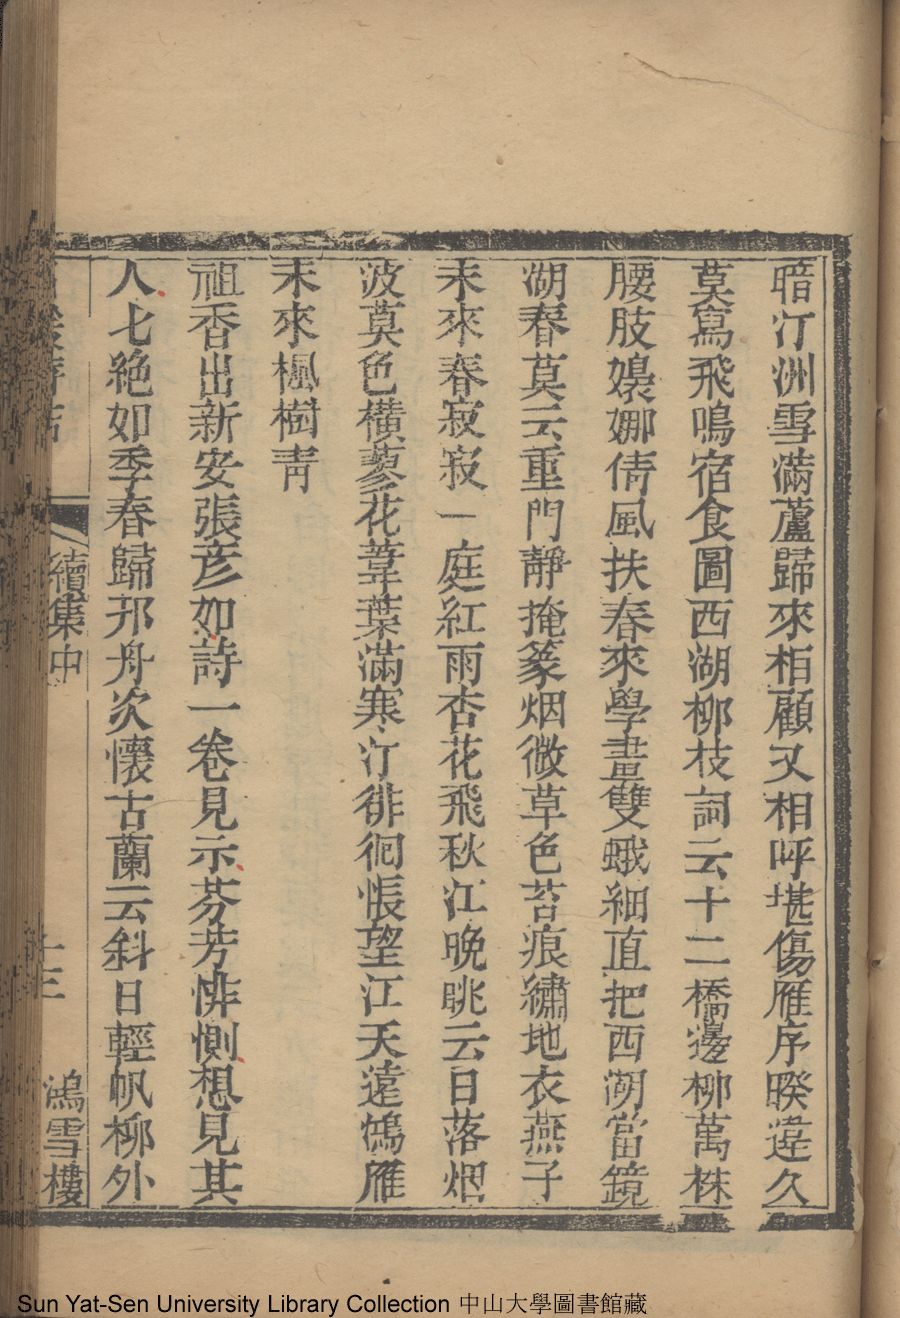 暗汀洲雪滿蘆歸來相顧又相呼堪傷雁序暌違久
莫寫飛鳴宿食圖西湖柳枝詞云十二橋邊柳萬株
腰肢嬝娜倩風扶春來學畫雙蛾細直把西湖當鏡
湖春莫云重門靜掩篆烟微草色苔痕繡地衣燕子
未來春寂寂一庭紅雨杏花飛秋江晚眺云日落烟
波莫色橫蓼花葦葉滿寒汀徘徊悵望江天遠鴻雁
未來楓樹青
祖香出新安張彥如詩一卷見示芬芳悱惻想見其
人七絕如季春歸邗舟次懷古蘭云斜日輕帆柳外
續集中
十三
鴻雪樓
Sun Yat-Sen University Library Collection 中山大學圖書館藏